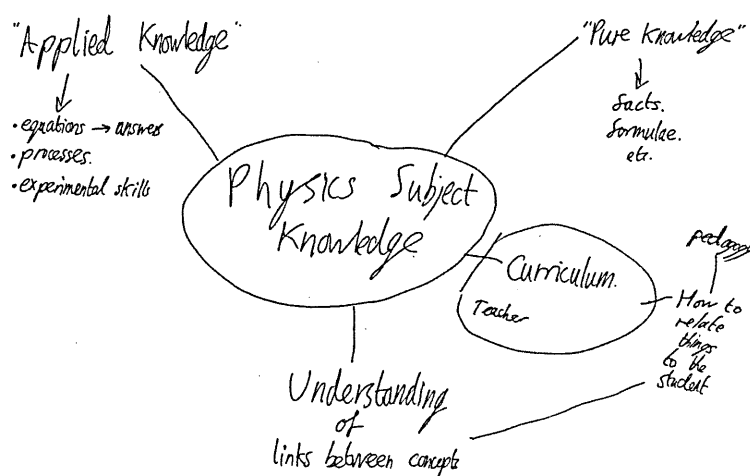 "Applied Knowledge"
• equations → answers
• processes.
• experimental skills
"Pure Knowledge"
facts.
formulae.
etc.
Physics Subject
Knowledge
Curriculum.
Teacher
pedagogy
How to
relate
things
to the
student
Understanding
of
links between concepts